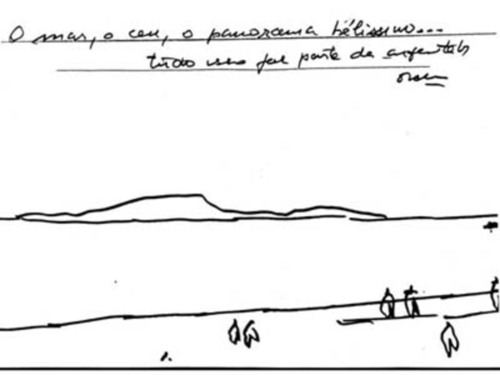 O mar, o ceu, o panorama bélissimo...
tudo isso faz parte da arquitetura